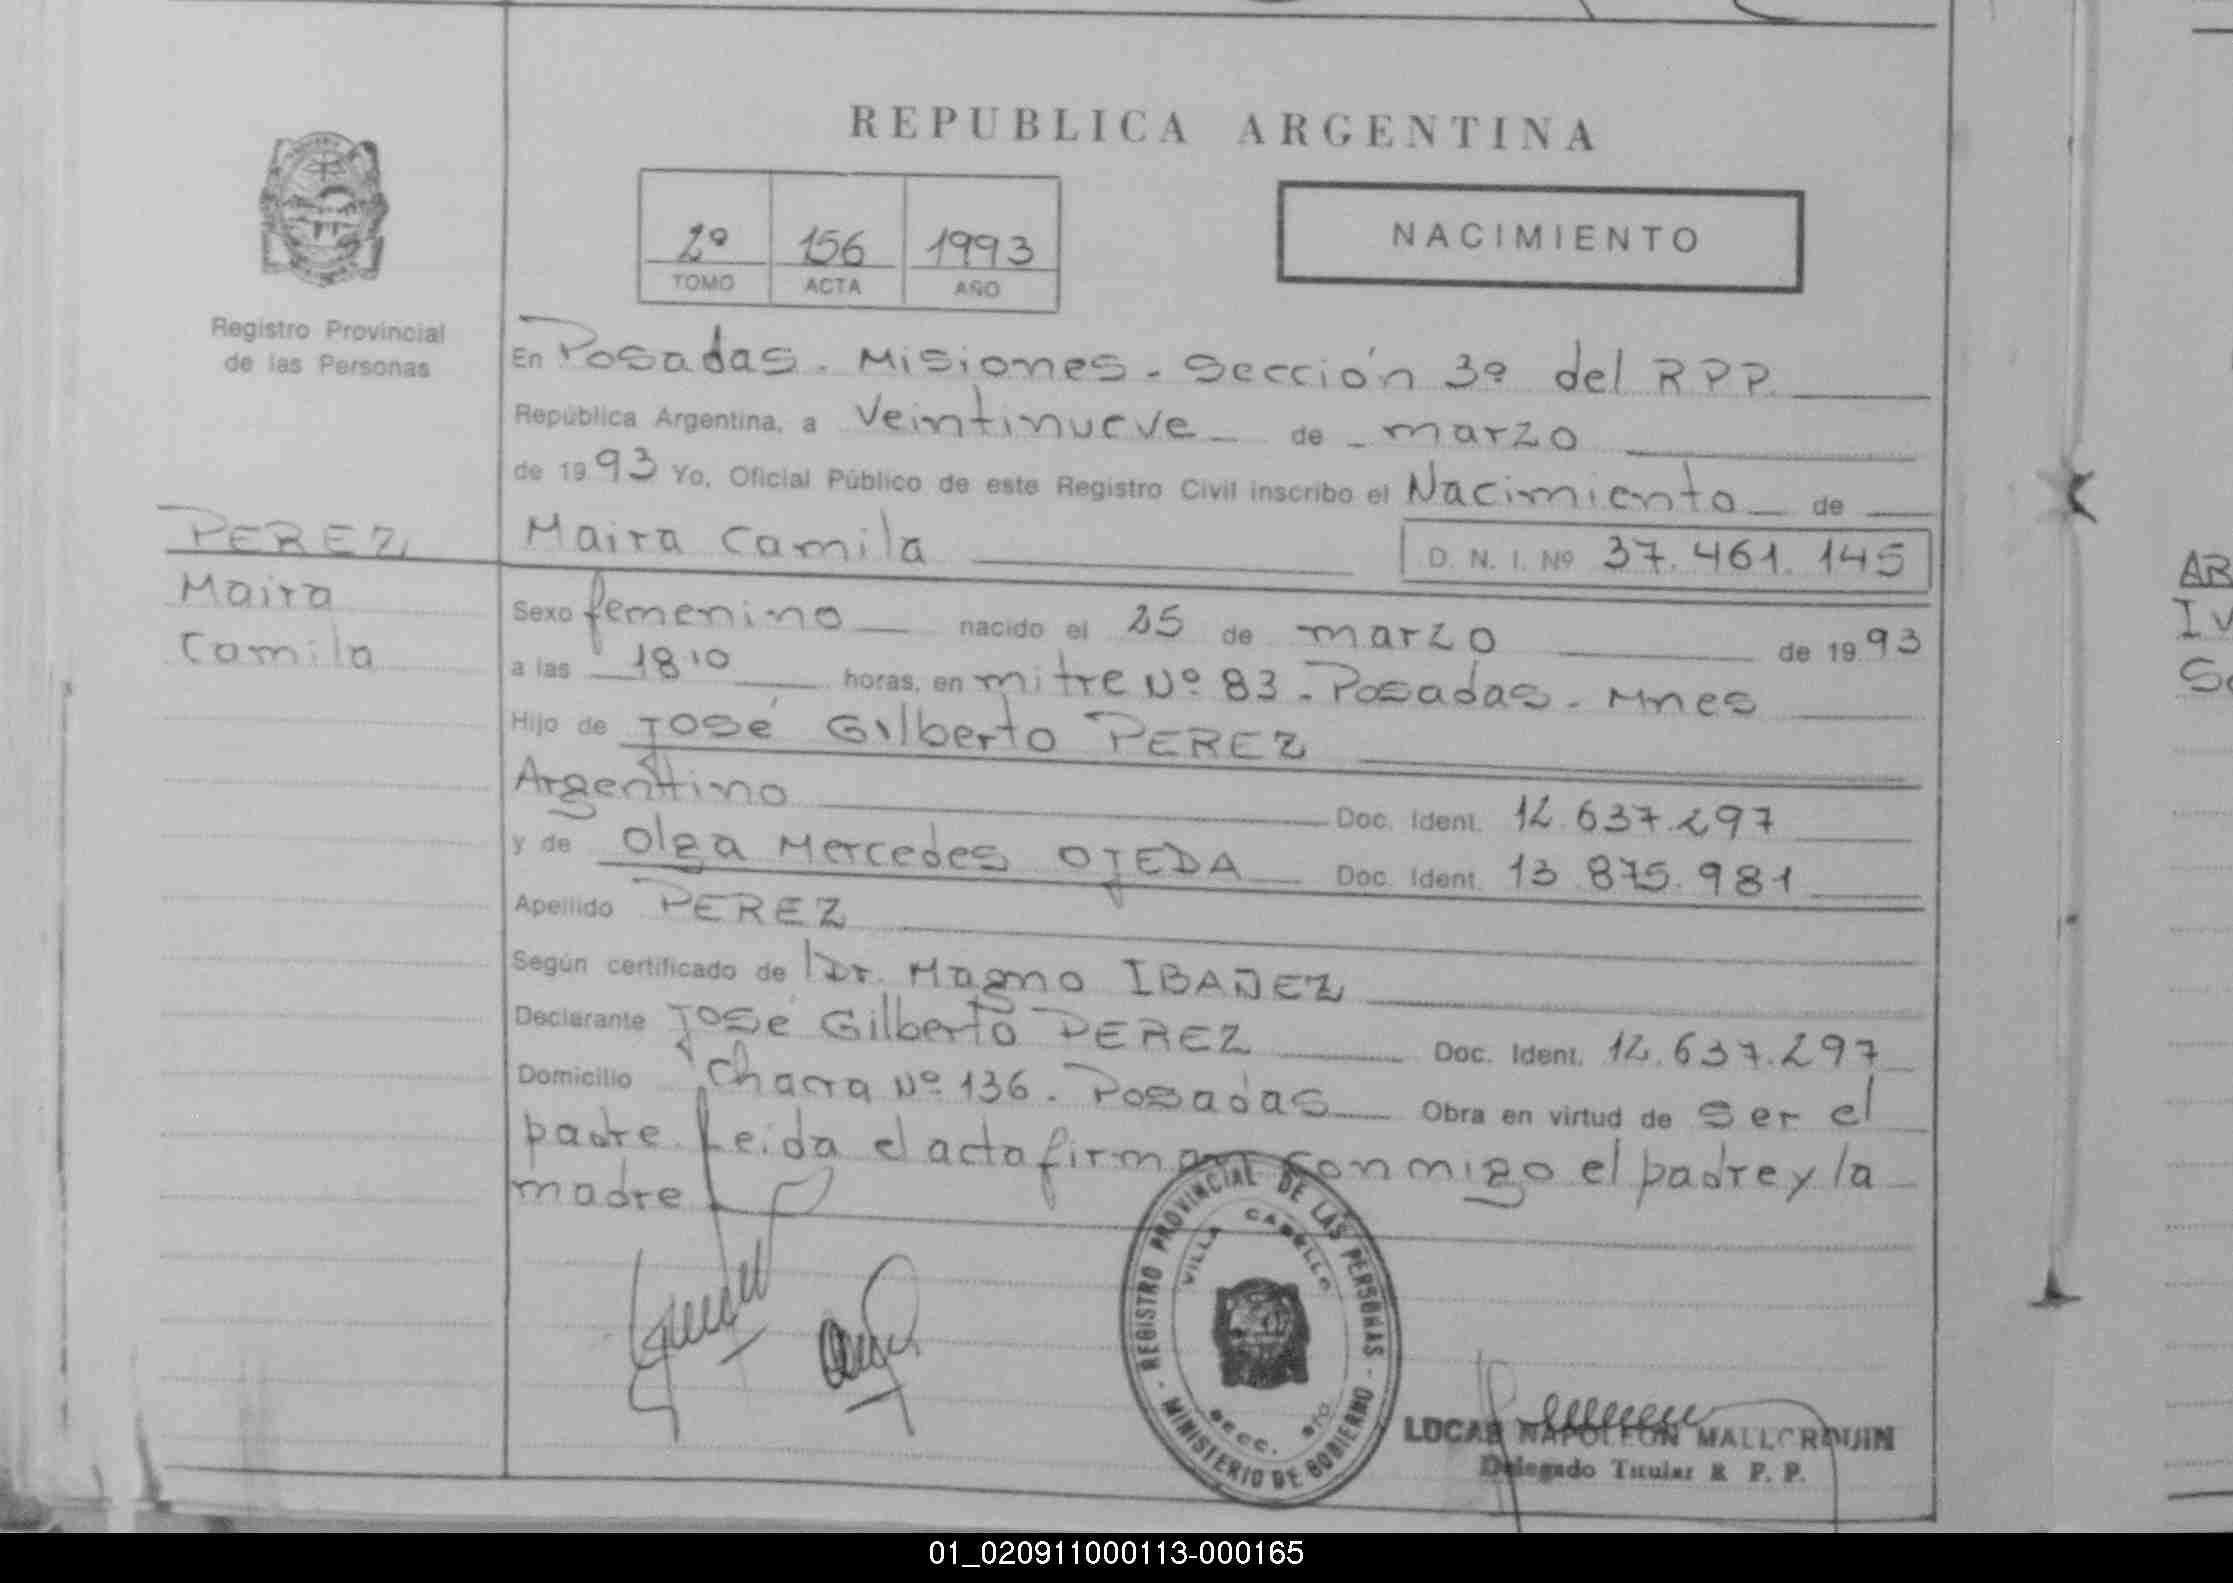 REPUBLICA ARGENTINA
2º 156 1993
TOMO ACTA AÑO
NACIMIENTO
Registro Provincial
de las Personas
PEREZ
Maira
Camila
En Posadas. Misiones. Sección 3º del RPP.
República Argentina, a Veintinueve de marzo
de 1993 Yo, Oficial Público de este Registro Civil inscribo el Nacimiento de
Maira Camila D. N. I. Nº 37.461.145
Sexo femenino nacido el 25 de marzo de 1993
a las 18'10 horas, en mitre Nº 83. Posadas. Mnes
Hijo de José Gilberto PEREZ
Argentino Doc. Ident. 12.637.297
y de Olga Mercedes OJEDA Doc. Ident. 13.875.981
Apellido PEREZ
Según certificado de Dr. Magno IBAÑEZ
Declarante José Gilberto PEREZ Doc. Ident. 12.637.297
Domicilio Chacra Nº 136. Posadas Obra en virtud de ser el
padre. Leida el acta firman conmigo el padre y la
madre
REGISTRO PROVINCIAL DE LAS PERSONAS
VILLA CABELLO
SECC.
- MINISTERIO DE GOBIERNO -
LUCAS NAPOLEON MALLORQUIN
Delegado Titular R. P. P.
AB
Iv
01_020911000113-000165